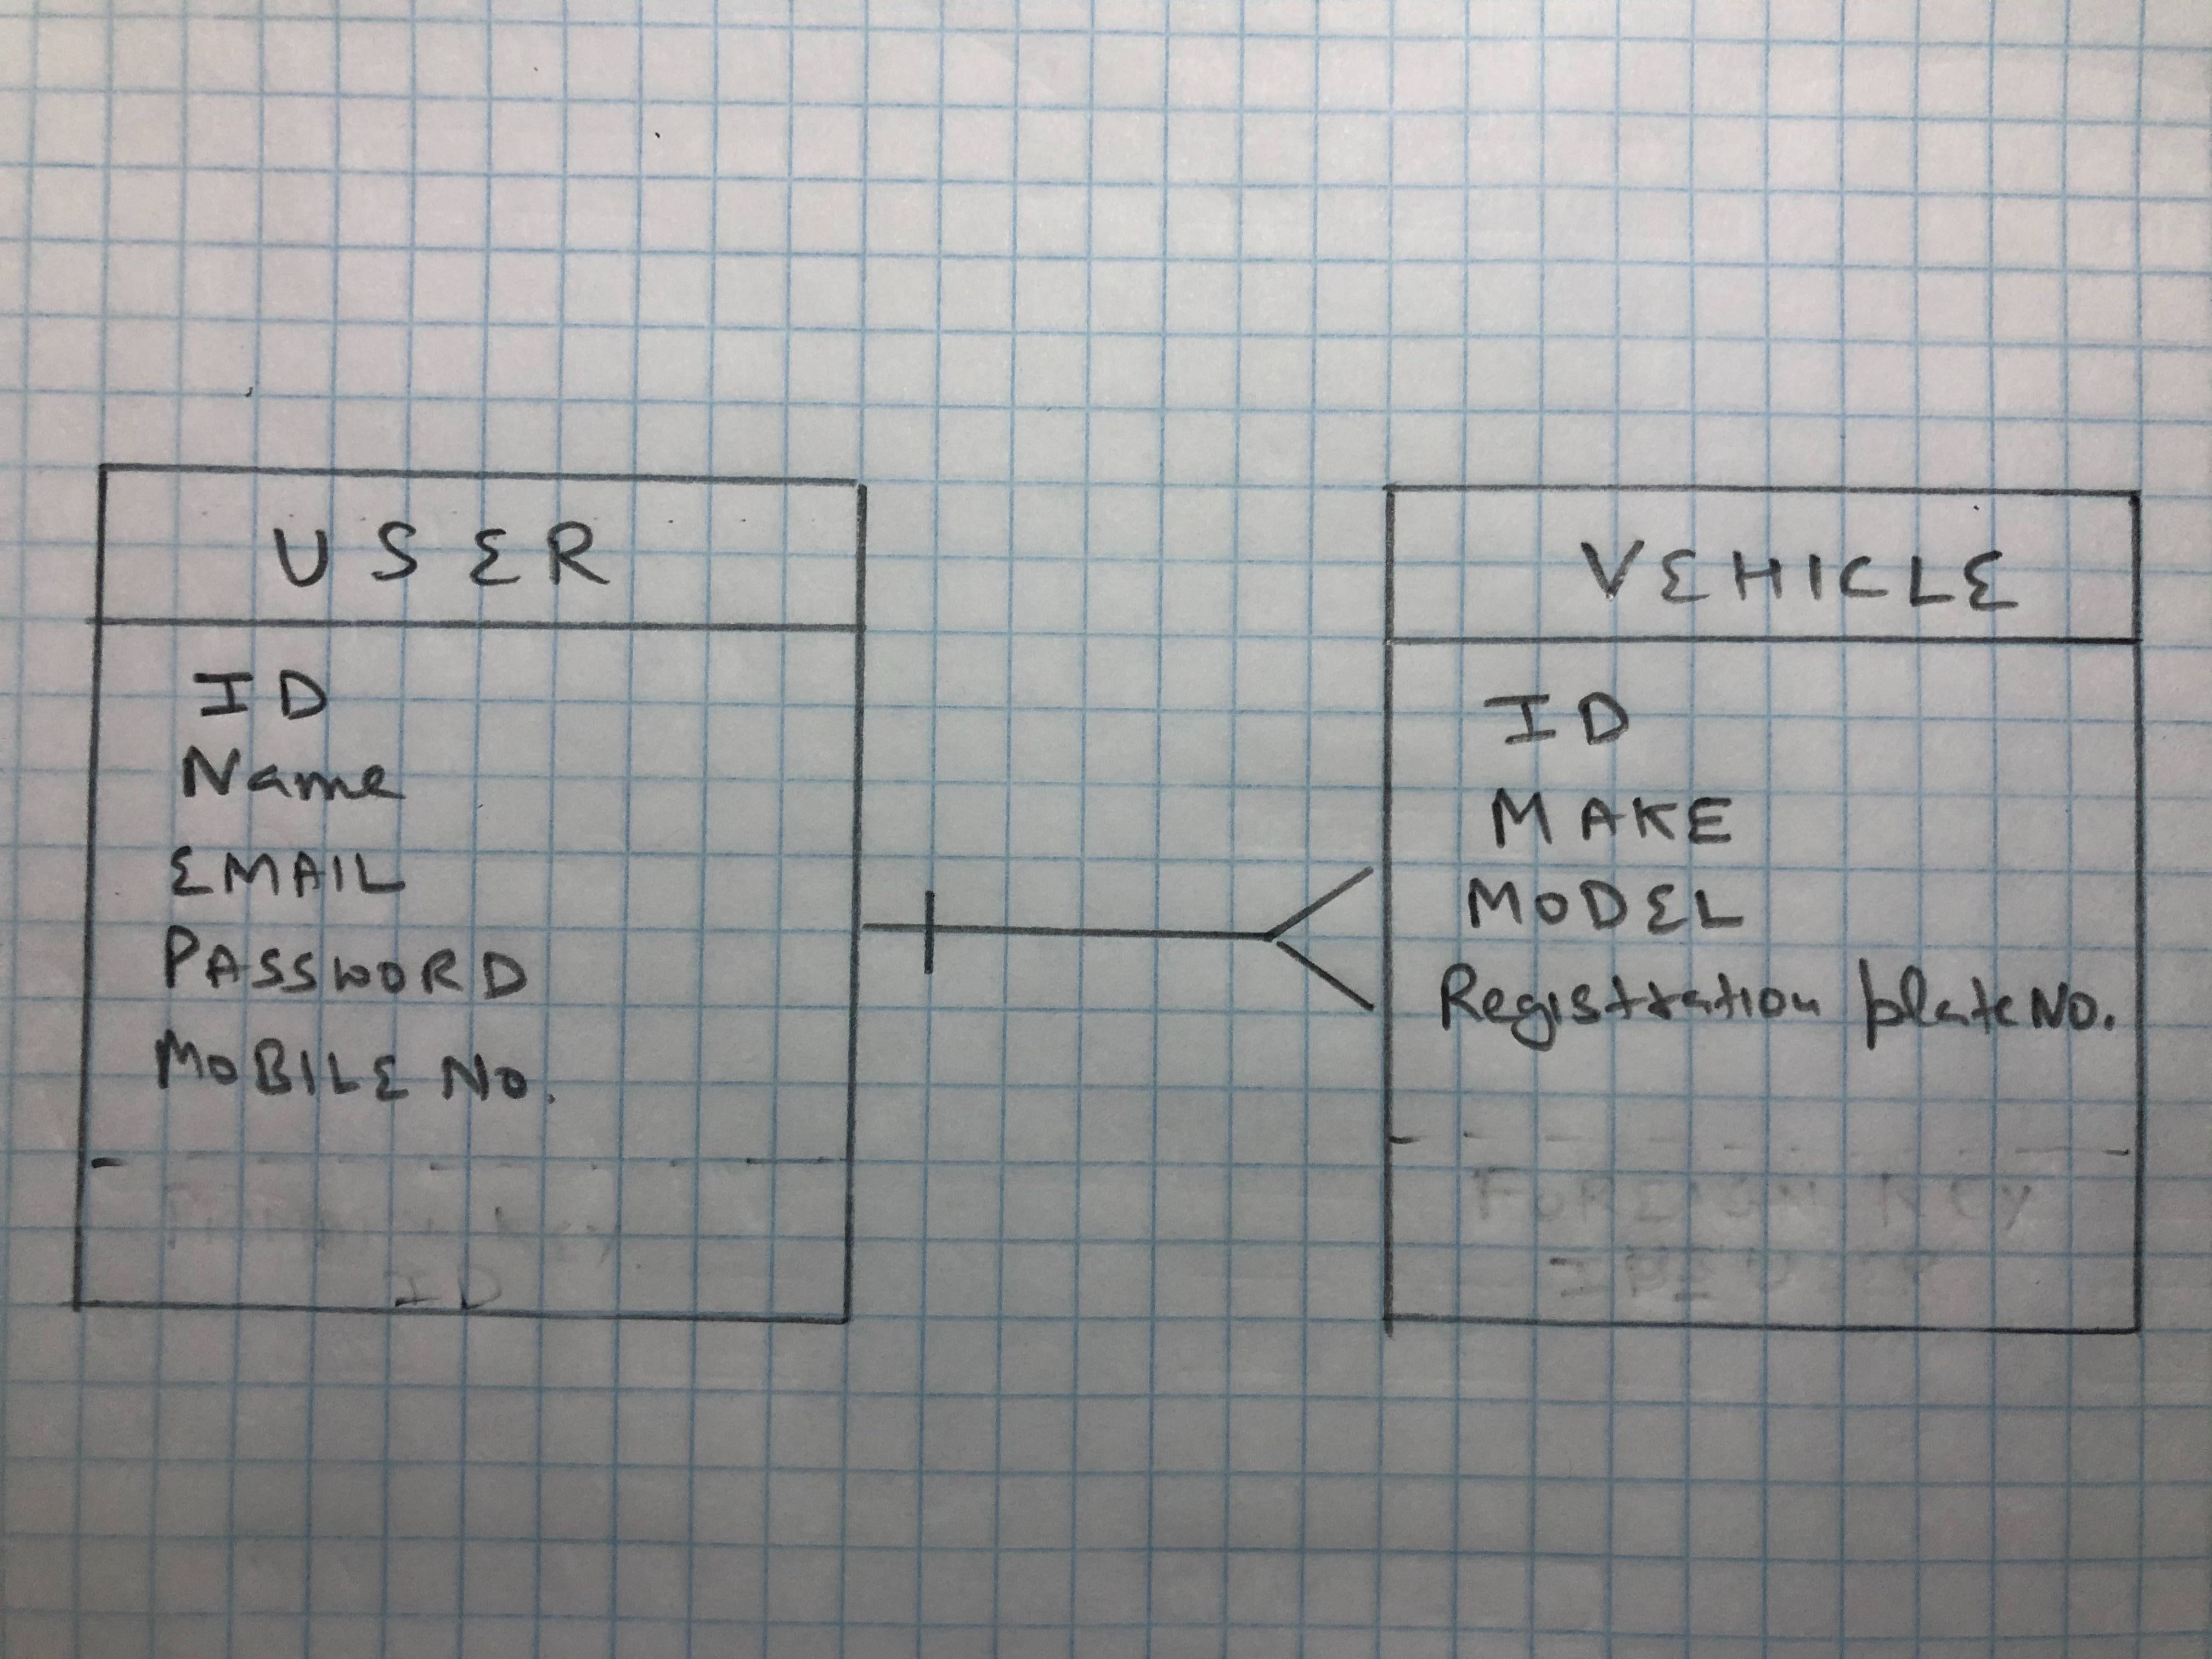 USER
ID
Name
EMAIL
PASSWORD
MOBILE NO.
ID
VEHICLE
ID
MAKE
MODEL
Registration plate NO.
FOREIGN KEY